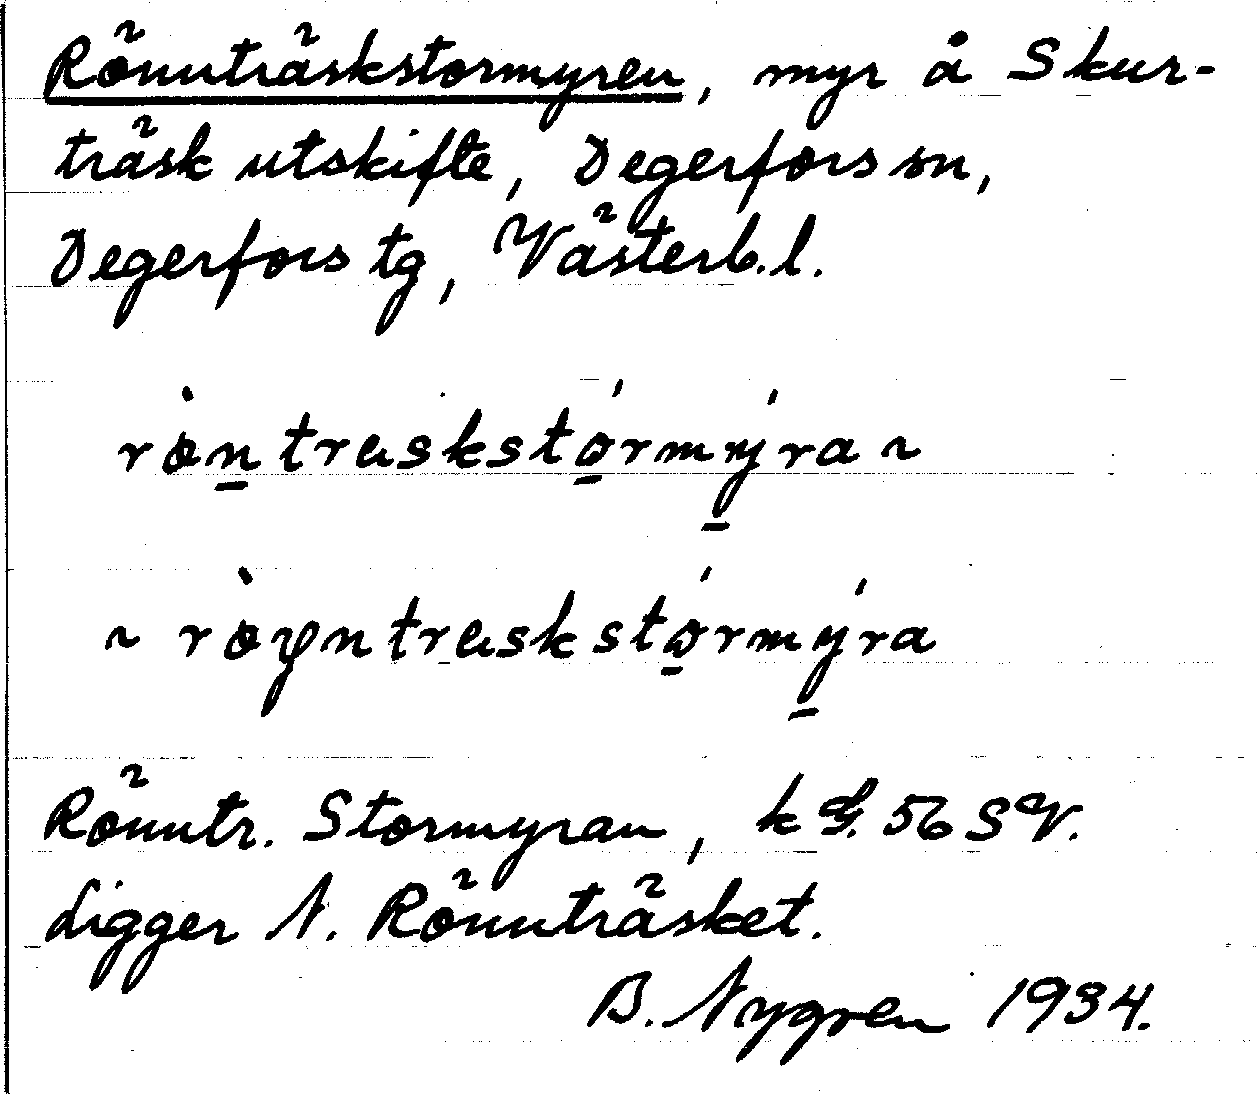 Rönnträskstormyren, myr å Skur-
träsk utskifte, Degerfors sn,
Degerfors tg, Västerb. l.
rønträskstǫ́rmýra ~
~ røyntræskstǫ́rmýra
Rönntr. Stormyran, k G. 56 SV.
Ligger N. Rönnträsket.
B. Nygren 1934.